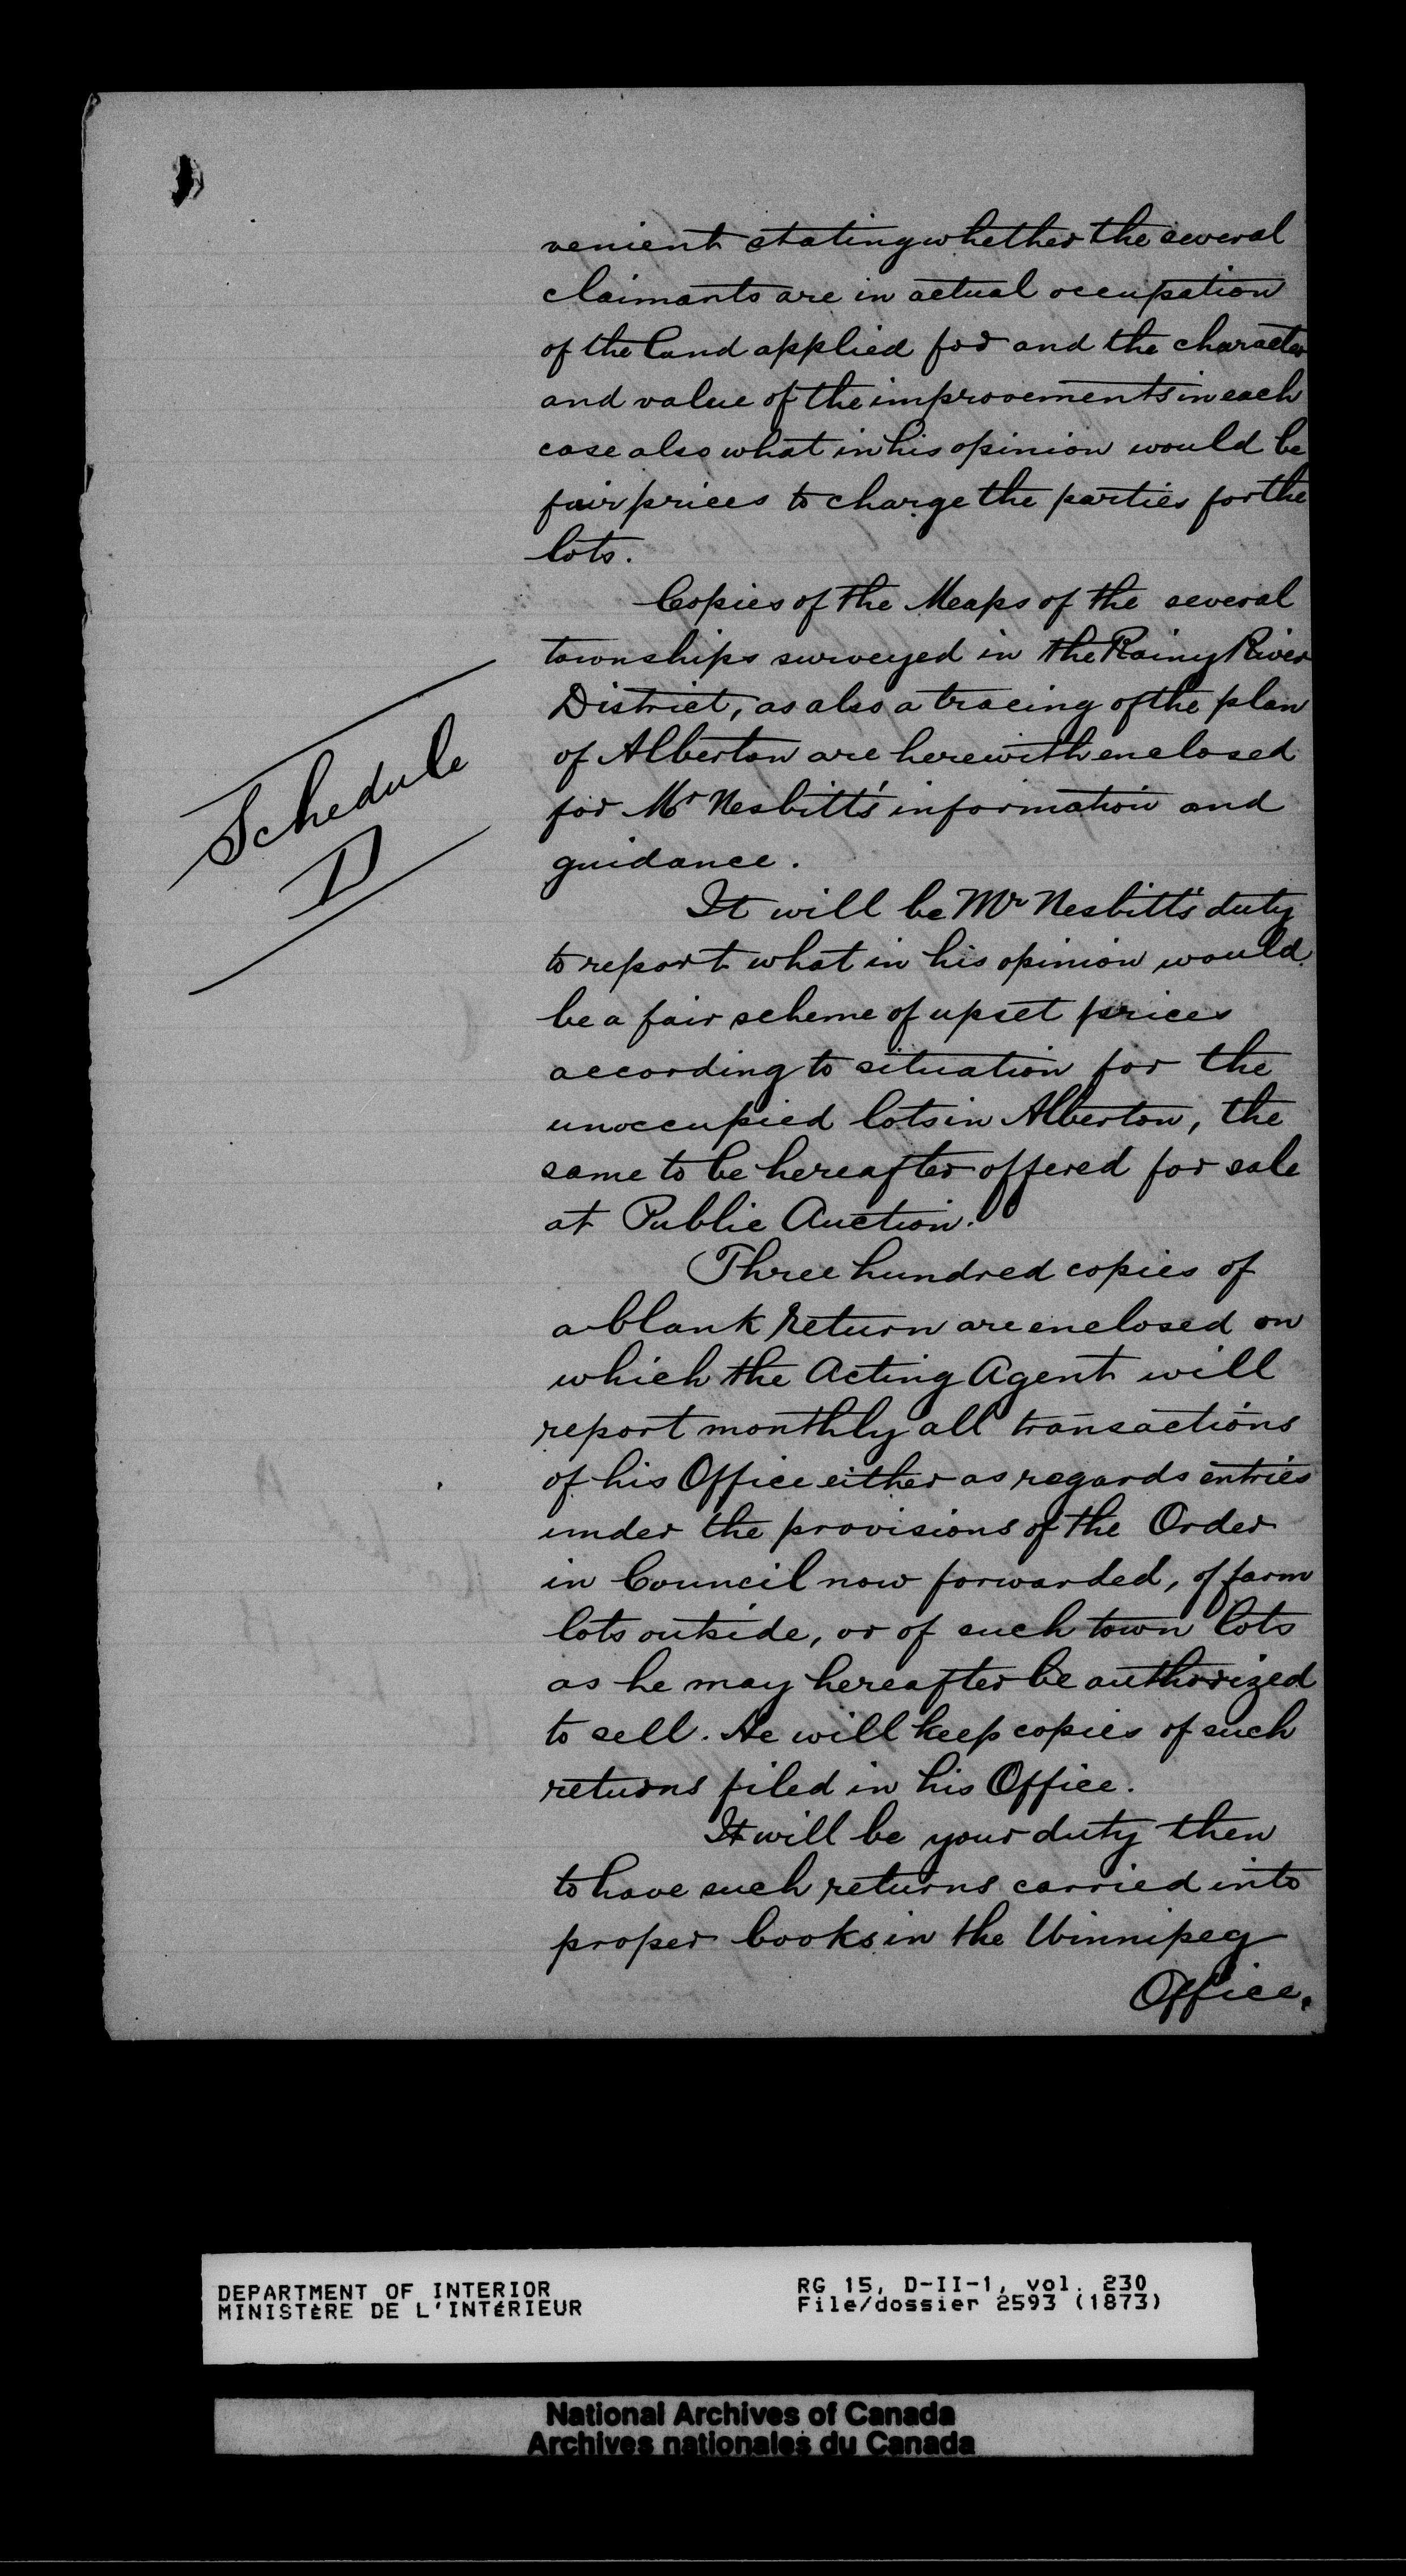 venient stating whether the several
claimants are in actual occupation
of the land applied for and the character
and value of the improvements in each
case also what in his opinion would be
fair prices to charge the parties for the
lots.
Copies of the Meaps of the several
townships surveyed in the Rainy River
District, as also a tracing of the plan
of Alberton are herewith enclosed
for Mr Nesbitt's information and
guidance.
Schedule
D
It will be Mr Nesbitt's duty
to report what in his opinion would
be a fair scheme of upset prices
according to situation for the
unoccupied lots in Alberton, the
same to be hereafter offered for sale
at Public Auction.
Three hundred copies of
a blank return are enclosed on
which the Acting Agent will
report monthly all transactions
of his Office either as regards entries
under the provisions of the Order
in Council now forwarded, of farm
lots outside, or of such town lots
as he may hereafter be authorized
to sell. He will keep copies of such
returns filed in his Office.
It will be your duty then
to have such returns carried into
proper books in the Winnipeg
Office.
DEPARTMENT OF INTERIOR
MINISTÈRE DE L'INTÉRIEUR
RG 15, D-II-1, vol. 230
File/dossier 2593 (1873)
National Archives of Canada
Archives nationales du Canada